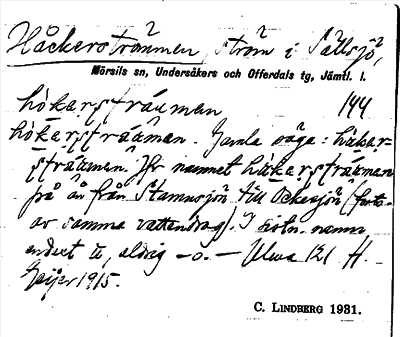 Håckerströmmen, ström i Sällsjö,
Mörsils sn, Undersåkers och Offerdals tg, Jämtl. l.
hökarsträuman 144
hökarsträuman. Gamla säga: häkar-
sträuman. Jfr namnet häkarsträuman
på ån från Stamnsjön till Ockesjön (forts.
av samma vattendrag). I sötn. namn
endast ä, aldrig -o. – Ulma 121 H.
Geijer 1915.
C. LINDBERG 1931.